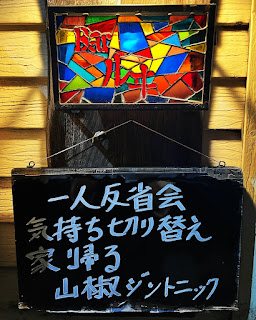 Bar
ルキ
一人反省会
気持ち切り替え
家帰る
山椒ジントニック